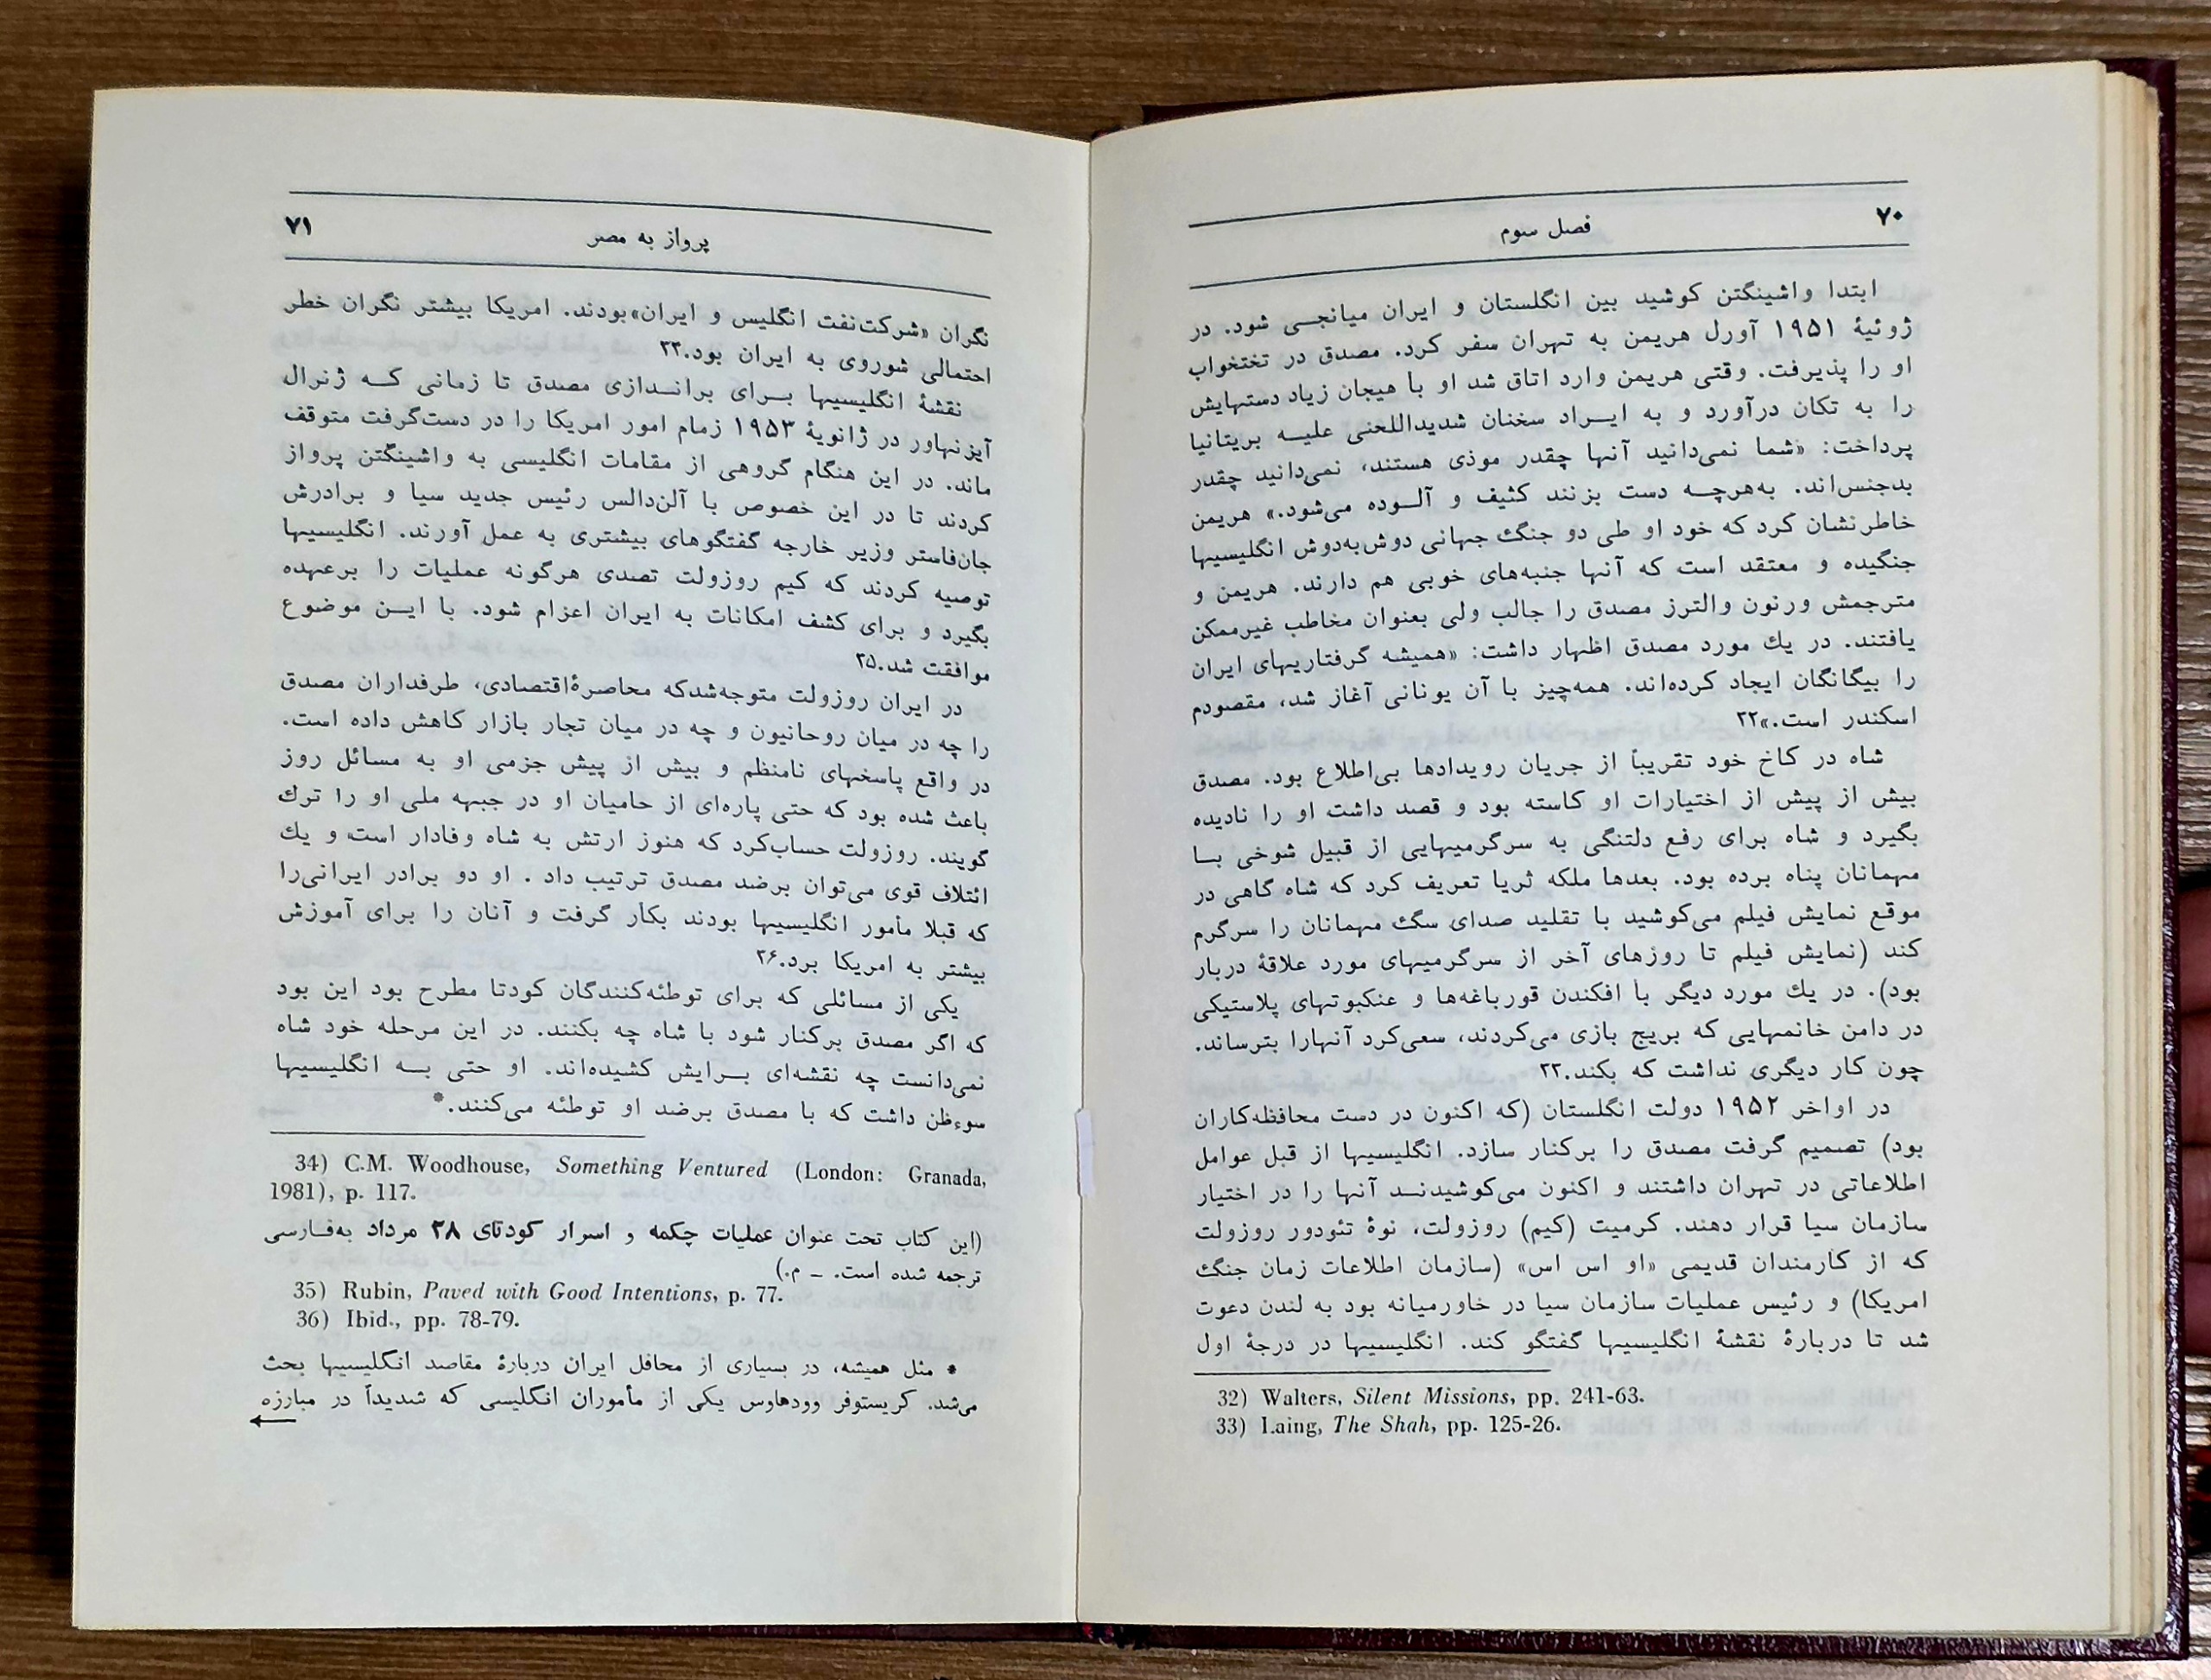 ۷۰
فصل سوم
ابتدا واشینگتن کوشید بین انگلستان و ایران میانجــی شود. در
ژوئیهٔ ۱۹۵۱ آورل هریمن به تهران سفر کرد. مصدق در تختخواب
او را پذیرفت. وقتی هریمن وارد اتاق شد او با هیجان زیاد دستهایش
را به تکان درآورد و به ایــراد سخنان شدیداللحنی علیــه بریتانیا
پرداخت: «شما نمی‌دانید آنها چقدر موذی هستند، نمی‌دانید چقدر
بدجنس‌اند. به‌هرچــه دست بزنند کثیف و آلــوده می‌شود.» هریمن
خاطرنشان کرد که خود او طی دو جنگ جهانی دوش‌به‌دوش انگلیسیها
جنگیده و معتقد است که آنها جنبه‌های خوبی هم دارند. هریمن و
مترجمش ورنون والترز مصدق را جالب ولی بعنوان مخاطب غیرممکن
یافتند. در یك مورد مصدق اظهار داشت: «همیشه گرفتاریهای ایران
را بیگانگان ایجاد کرده‌اند. همه‌چیز با آن یونانی آغاز شد، مقصودم
اسکندر است.»۳۲
شاه در کاخ خود تقریباً از جریان رویدادها بی‌اطلاع بود. مصدق
بیش از پیش از اختیارات او کاسته بود و قصد داشت او را نادیده
بگیرد و شاه برای رفع دلتنگی به سرگرمیهایی از قبیل شوخی بــا
مهمانان پناه برده بود. بعدها ملکه ثریا تعریف کرد که شاه گاهی در
موقع نمایش فیلم می‌کوشید با تقلید صدای سگ مهمانان را سرگرم
کند (نمایش فیلم تا روزهای آخر از سرگرمیهای مورد علاقهٔ دربار
بود). در یك مورد دیگر با افکندن قورباغه‌ها و عنکبوتهای پلاستیکی
در دامن خانمهایی که بریج بازی می‌کردند، سعی‌کرد آنهارا بترساند.
چون کار دیگری نداشت که بکند.۳۳
در اواخر ۱۹۵۲ دولت انگلستان (که اکنون در دست محافظه‌کاران
بود) تصمیم گرفت مصدق را برکنار سازد. انگلیسیها از قبل عوامل
اطلاعاتی در تهران داشتند و اکنون می‌کوشیدنــد آنها را در اختیار
سازمان سیا قرار دهند. کرمیت (کیم) روزولت، نوهٔ تئودور روزولت
که از کارمندان قدیمی «او اس اس» (سازمان اطلاعات زمان جنگ
امریکا) و رئیس عملیات سازمان سیا در خاورمیانه بود به لندن دعوت
شد تا دربارهٔ نقشهٔ انگلیسیها گفتگو کند. انگلیسیها در درجهٔ اول
32) Walters, Silent Missions, pp. 241-63.
33) Laing, The Shah, pp. 125-26.
پرواز به مصر
۷۱
نگران «شرکت‌نفت انگلیس و ایران»بودند. امریکا بیشتر نگران خطر
احتمالی شوروی به ایران بود.۳۴
نقشهٔ انگلیسیها بــرای برانــدازی مصدق تا زمانی کــه ژنرال
آیزنهاور در ژانویهٔ ۱۹۵۳ زمام امور امریکا را در دست‌گرفت متوقف
ماند. در این هنگام گروهی از مقامات انگلیسی به واشینگتن پرواز
کردند تا در این خصوص با آلن‌دالس رئیس جدید سیا و برادرش
جان‌فاستر وزیر خارجه گفتگوهای بیشتری به عمل آورند. انگلیسیها
توصیه کردند که کیم روزولت تصدی هرگونه عملیات را برعهده
بگیرد و برای کشف امکانات به ایران اعزام شود. با ایــن موضوع
موافقت شد.۳۵
در ایران روزولت متوجه‌شدکه محاصرهٔ‌اقتصادی، طرفداران مصدق
را چه در میان روحانیون و چه در میان تجار بازار کاهش داده است.
در واقع پاسخهای نامنظم و بیش از پیش جزمی او به مسائل روز
باعث شده بود که حتی پاره‌ای از حامیان او در جبهه ملی او را ترك
گویند. روزولت حساب‌کرد که هنوز ارتش به شاه وفادار است و یك
ائتلاف قوی می‌توان برضد مصدق ترتیب داد . او دو برادر ایرانی‌را
که قبلا مأمور انگلیسیها بودند بکار گرفت و آنان را برای آموزش
بیشتر به امریکا برد.۳۶
یکی از مسائلی که برای توطئه‌کنندگان کودتا مطرح بود این بود
که اگر مصدق برکنار شود با شاه چه بکنند. در این مرحله خود شاه
نمی‌دانست چه نقشه‌ای بــرایش کشیده‌اند. او حتی بــه انگلیسیها
سوءظن داشت که با مصدق برضد او توطئه می‌کنند.*
34) C.M. Woodhouse, Something Ventured (London: Granada,
1981), p. 117.
(این کتاب تحت عنوان عملیات چکمه و اسرار کودتای ۲۸ مرداد به‌فــارسی
ترجمه شده است. ــ م.)
35) Rubin, Paved with Good Intentions, p. 77.
36) Ibid., pp. 78-79.
* مثل همیشه، در بسیاری از محافل ایران دربارهٔ مقاصد انگلیسیها بحث
می‌شد. کریستوفر وودهاوس یکی از مأموران انگلیسی که شدیداً در مبارزه
←